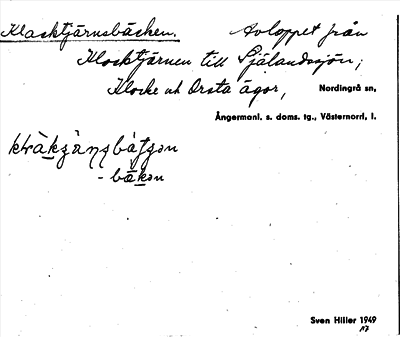 Klocktjärnsbäcken. Avloppet från
Klocktjärnen till Själandssjön;
Klocke och Orsta ägor, Nordingrå sn,
Ångermanl. s. doms. tg., Västernorrl. l.
- bäkən
Sven Hiller 1949